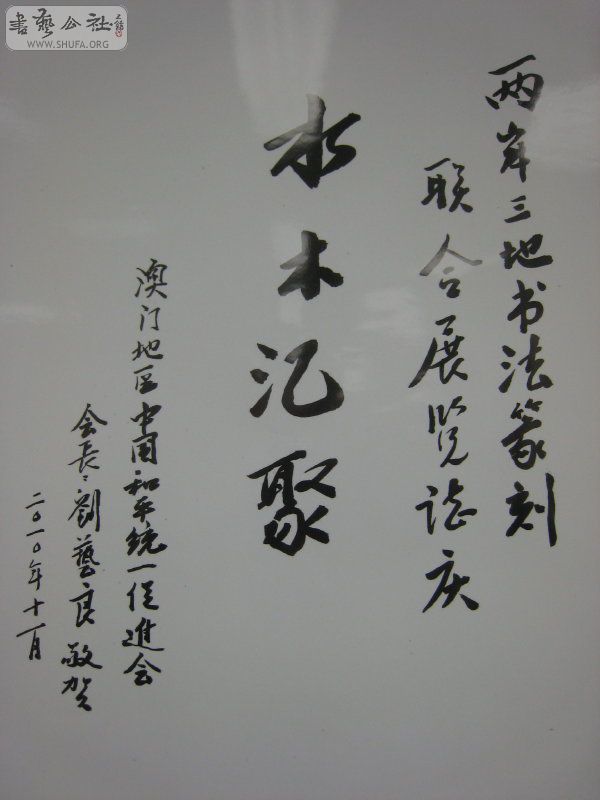 两岸三地书法篆刻
联合展览志庆
水木汇聚
澳门地区中国和平统一促进会
会长:劉藝良 敬贺
二〇一〇年十一月
書藝公社
WWW.SHUFA.ORG